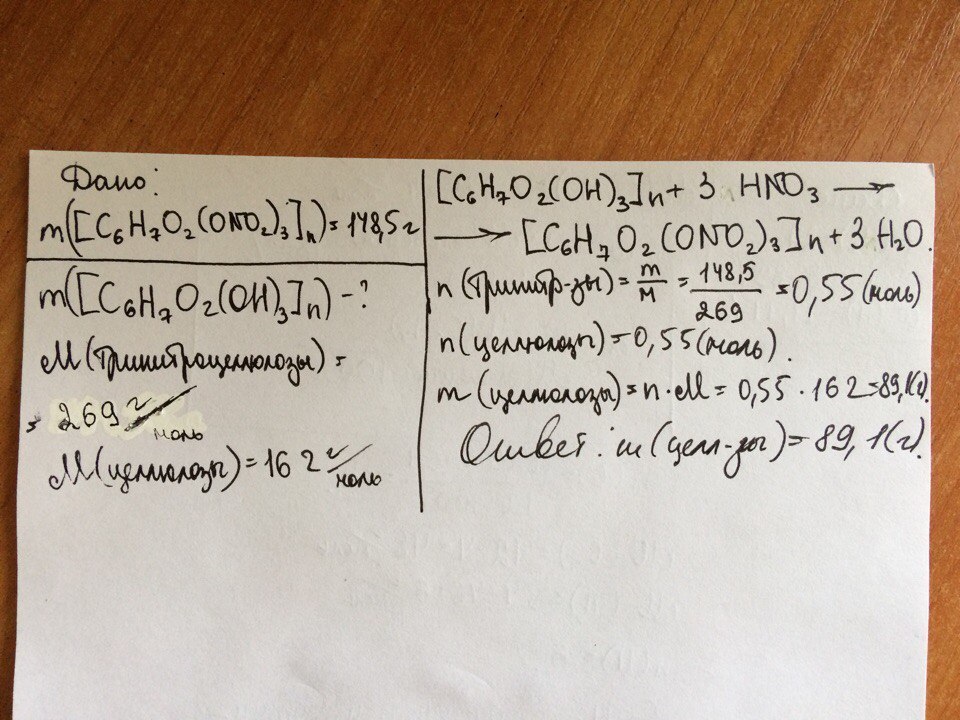 Дано:
m([C₆H₇O₂(ONO₂)₃]ₙ)=148,5 г
m([C₆H₇O₂(OH)₃]ₙ) - ?
M(тринитроцеллюлозы) =
= 269 г/моль
M(целлюлозы) = 162 г/моль
[C₆H₇O₂(OH)₃]ₙ + 3 HNO₃ →
→ [C₆H₇O₂(ONO₂)₃]ₙ + 3 H₂O.
n (тринитр-зы) = m/M = 148,5/269 = 0,55 (моль)
n (целлюлозы) = 0,55 (моль).
m (целлюлозы) = n · M = 0,55 · 162 = 89,1(г).
Ответ: m(целл-зы) = 89,1(г).